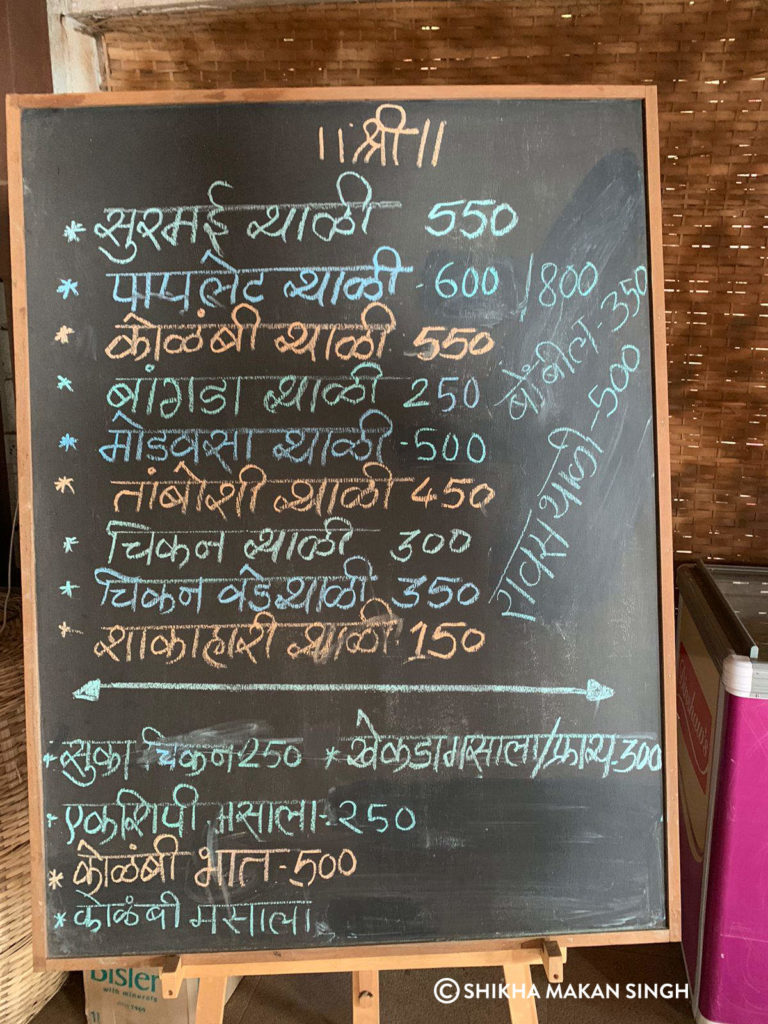 ॥श्री॥
* सुरमई थाळी 550
* पापलेट थाळी - 600 / 800
* कोळंबी थाळी 550
* बांगडा थाळी 250
* मोडवसा थाळी - 500
* तांबोशी थाळी 450
* चिकन थाळी 300
* चिकन वडे थाळी 350
* शाकाहारी थाळी 150
बोंबील - 350
थाळी - 500
* सुका चिकन 250
* खेकडा मसाला / फ्राय - 300
* एकशिपी मसाला - 250
* कोळंबी भात - 500
* कोळंबी मसाला
Bisler
with minerals
© SHIKHA MAKAN SINGH